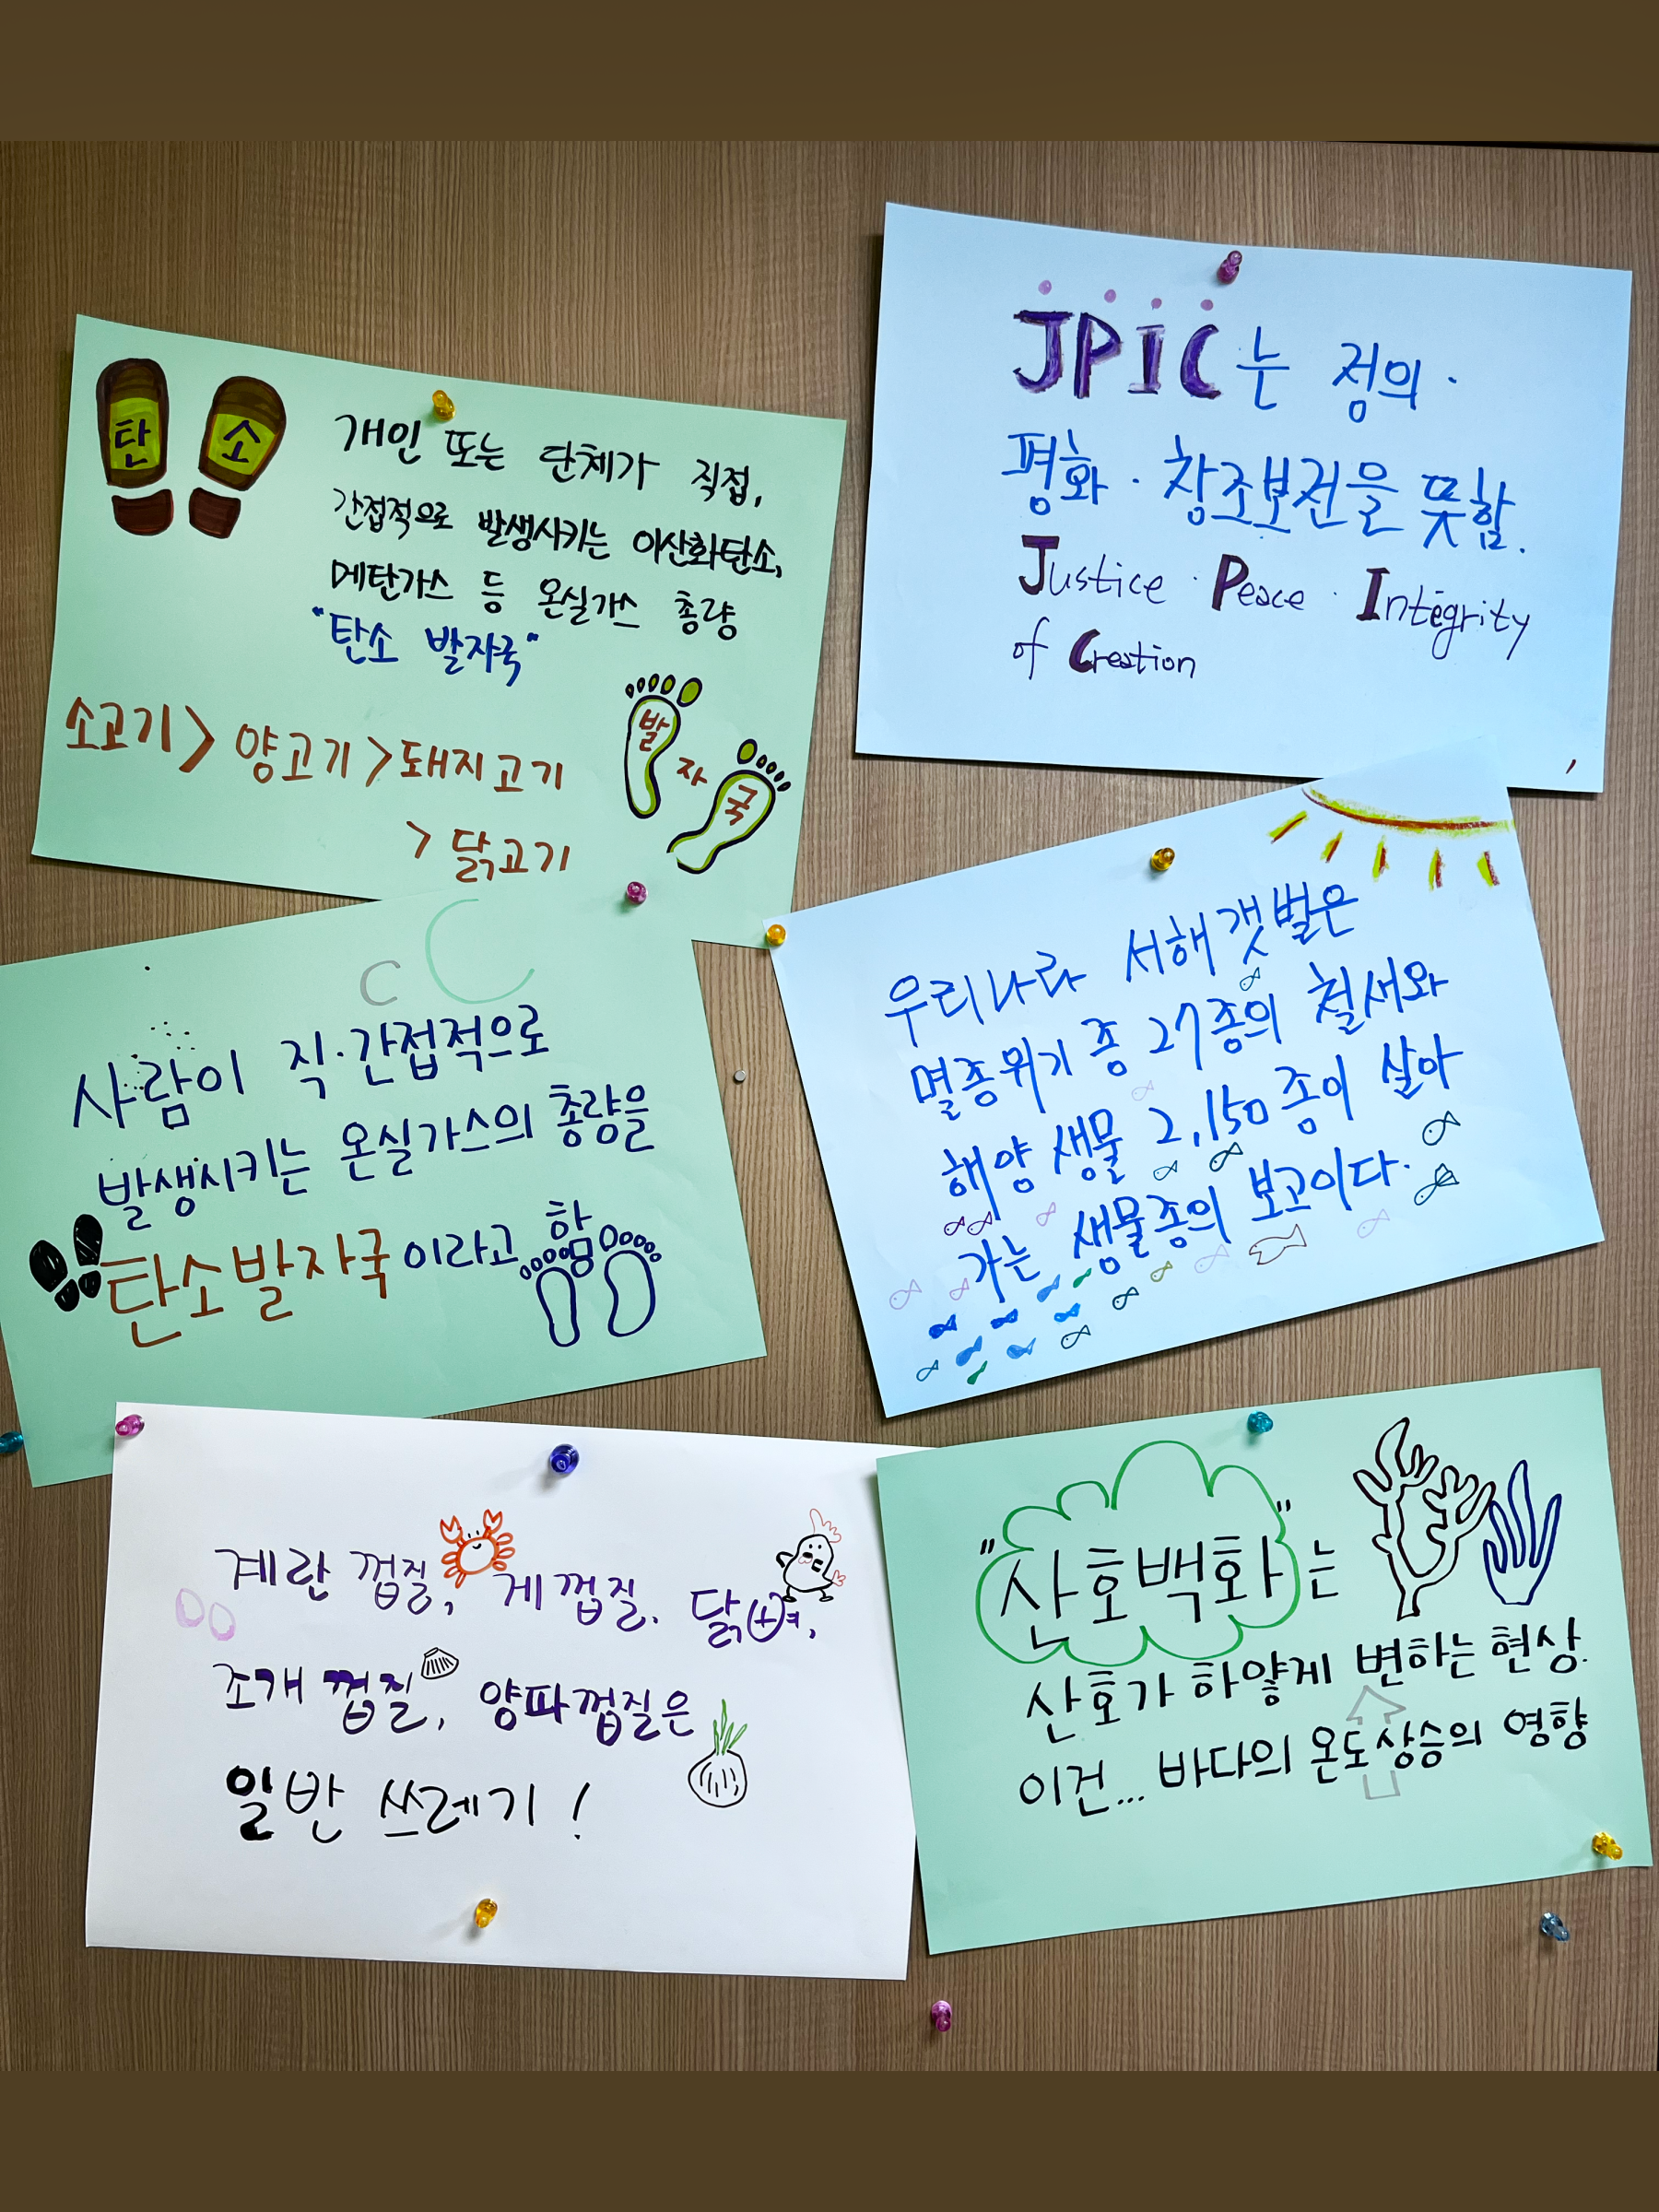 탄 소
개인 또는 단체가 직접,
간접적으로 발생시키는 이산화탄소,
메탄가스 등 온실가스 총량
"탄소 발자국"
소고기 > 양고기 > 돼지고기
> 닭고기
발
자
국
JPIC는 정의·
평화·창조보전을 뜻함.
Justice · Peace · Integrity
of Creation
C C
사람이 직·간접적으로
발생시키는 온실가스의 총량을
탄소발자국이라고 함
우리나라 서해 갯벌은
멸종위기 종 27종의 철새와
해양 생물 2,150종이 살아
가는 생물종의 보고이다.
계란 껍질, 게 껍질. 닭뼈,
조개 껍질, 양파껍질은
일반 쓰레기!
"산호백화"는
산호가 하얗게 변하는 현상.
이건... 바다의 온도상승의 영향